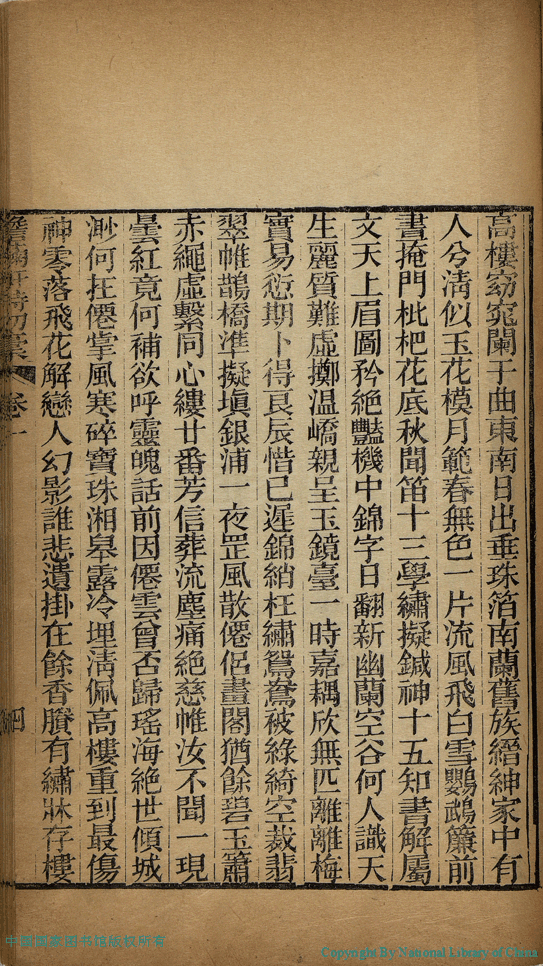 高樓窈窕闌干曲東南日出垂珠箔南蘭舊族縉紳家中有
人兮淸似玉花模月範春無色一片流風飛白雪鸚鵡簾前
書掩門枇杷花底秋聞笛十三學繡擬鍼神十五知書解屬
文天上眉圖矜絕豔機中錦字日翻新幽蘭空谷何人識天
生麗質難虛擲温嶠親呈玉鏡臺一時嘉耦欣無匹離離梅
實易愆期卜得良辰惜已遲錦綃枉繡鴛鴦被綠綺空裁翡
翠帷鵲橋準擬塡銀浦一夜罡風散僊侶畫閣猶餘碧玉簫
赤繩虛繫同心縷廿番芳信葬流塵痛絕慈帷汝不聞一現
曇紅竟何補欲呼靈魄話前因僊雲曾否歸瑤海絕世傾城
渺何在僊掌風寒碎寶珠湘皋露冷埋淸佩高樓重到最傷
神零落飛花解戀人幻影誰悲遺掛在餘香賸有繡牀存樓
卷一
四
中國國家图书馆版权所有
Copyright By National Library of China